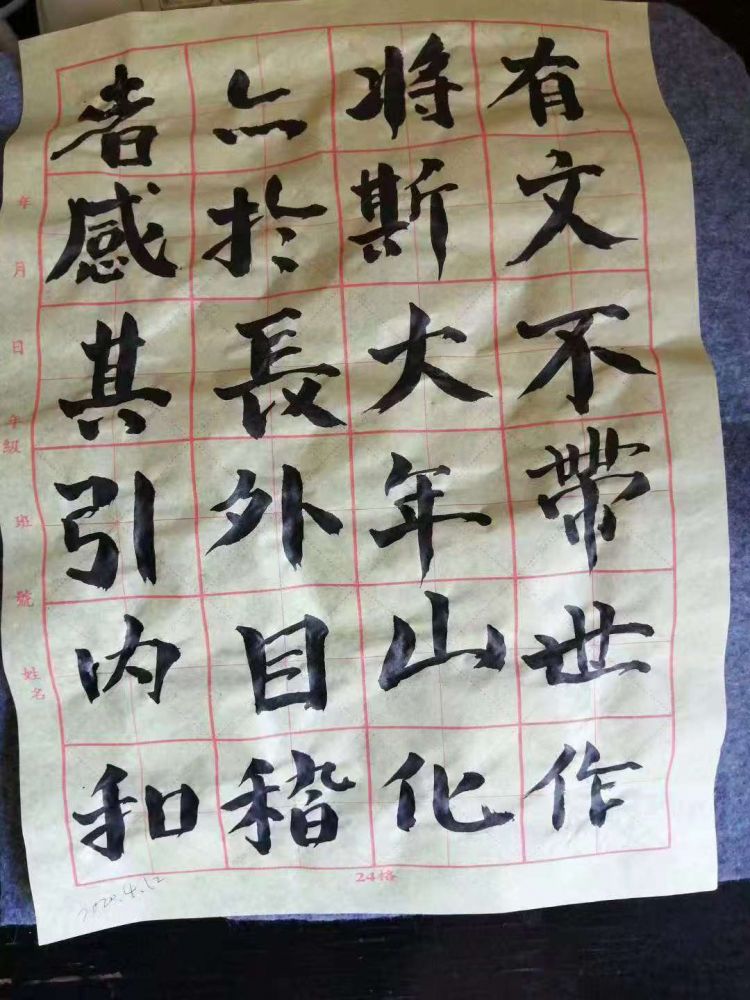 有文不帶世作
将斯大年山化
亦於長外目稽
者感其引内和
年 月 日 年級 班 號 姓名
24格
2020.4.12